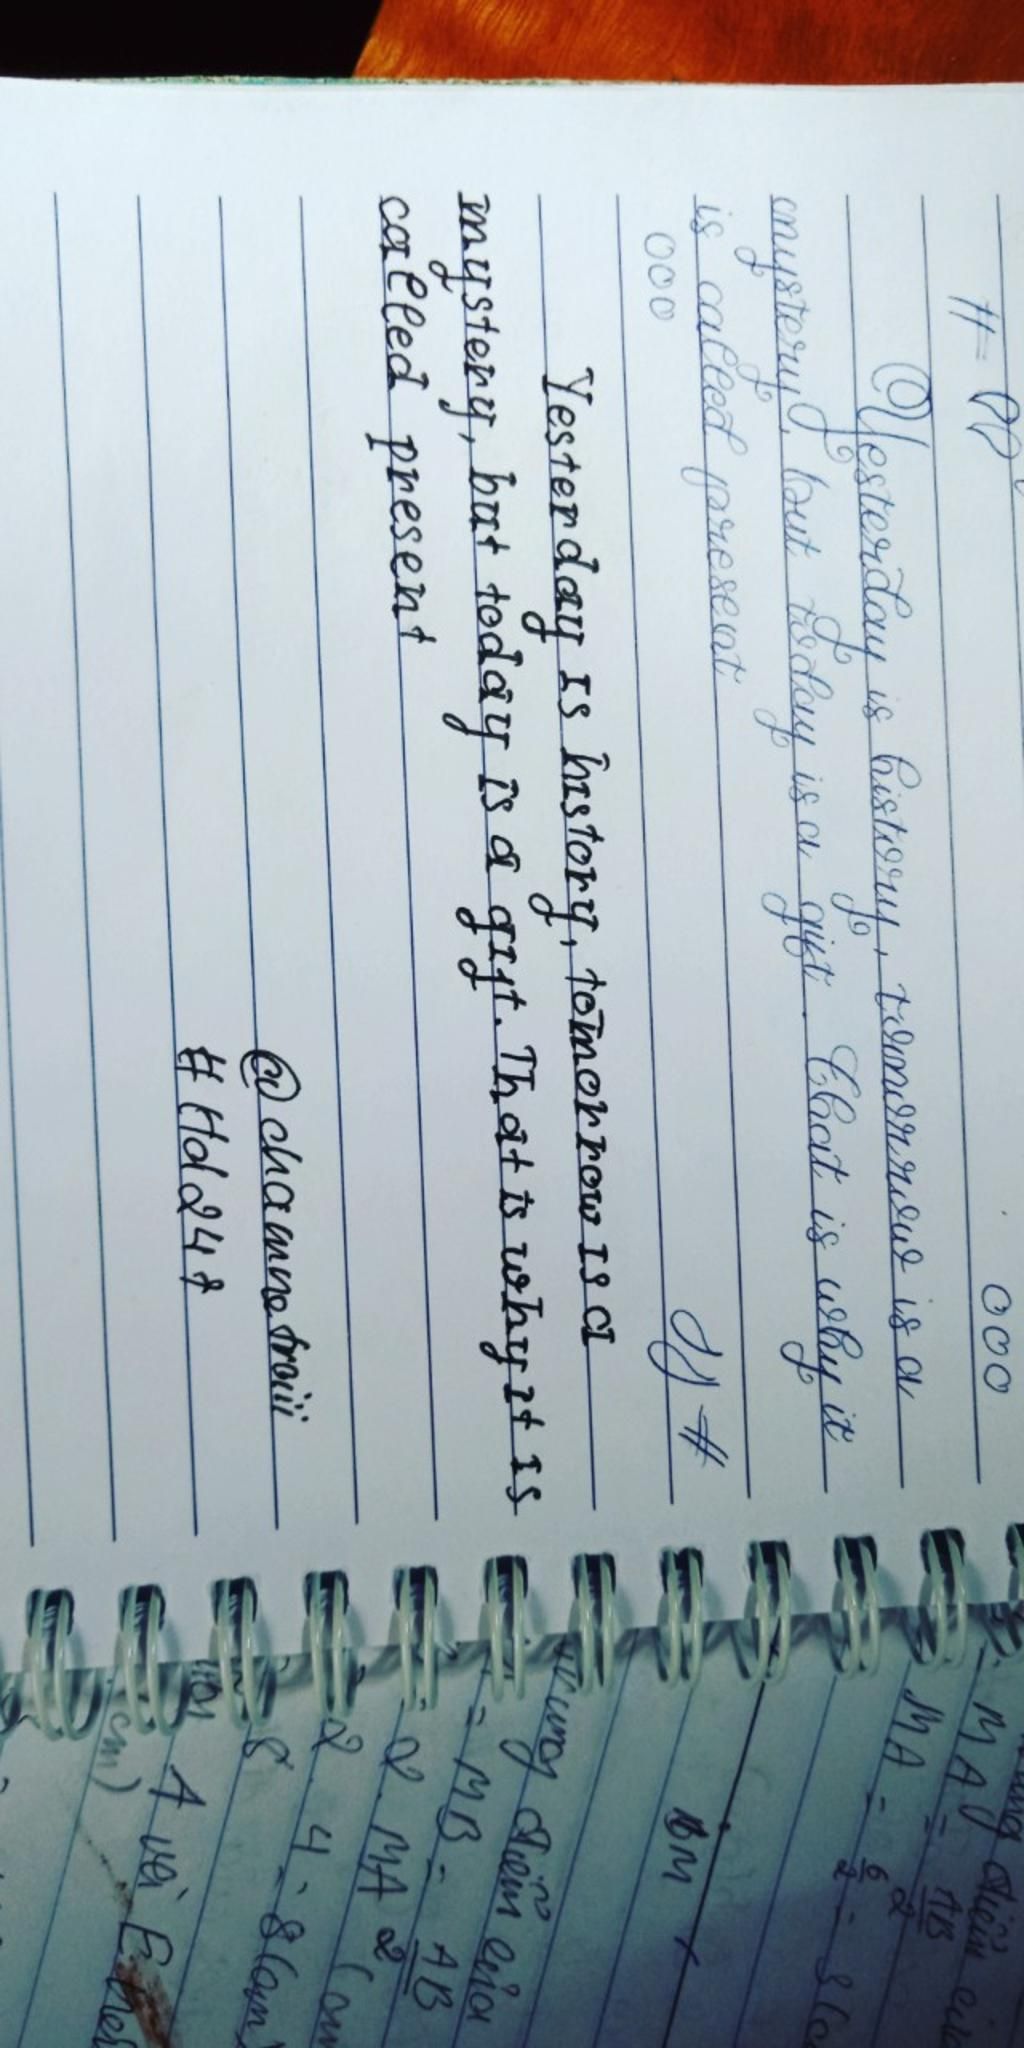 ooo
Yesterday is history, tomorrow is a
mystery, but today is a gift. That is why it
is called present
ooo
#
Yesterday is history, tomorrow is a
mystery, but today is a gift. That is why it is
called present
@chamnotroiii
#Hd247
MA = AB/2
MA = 6/2 =
BM
điểm của
= MB = AB/2
2. MA
2. 4 = 8 (cm)
8
A và E
(cm)